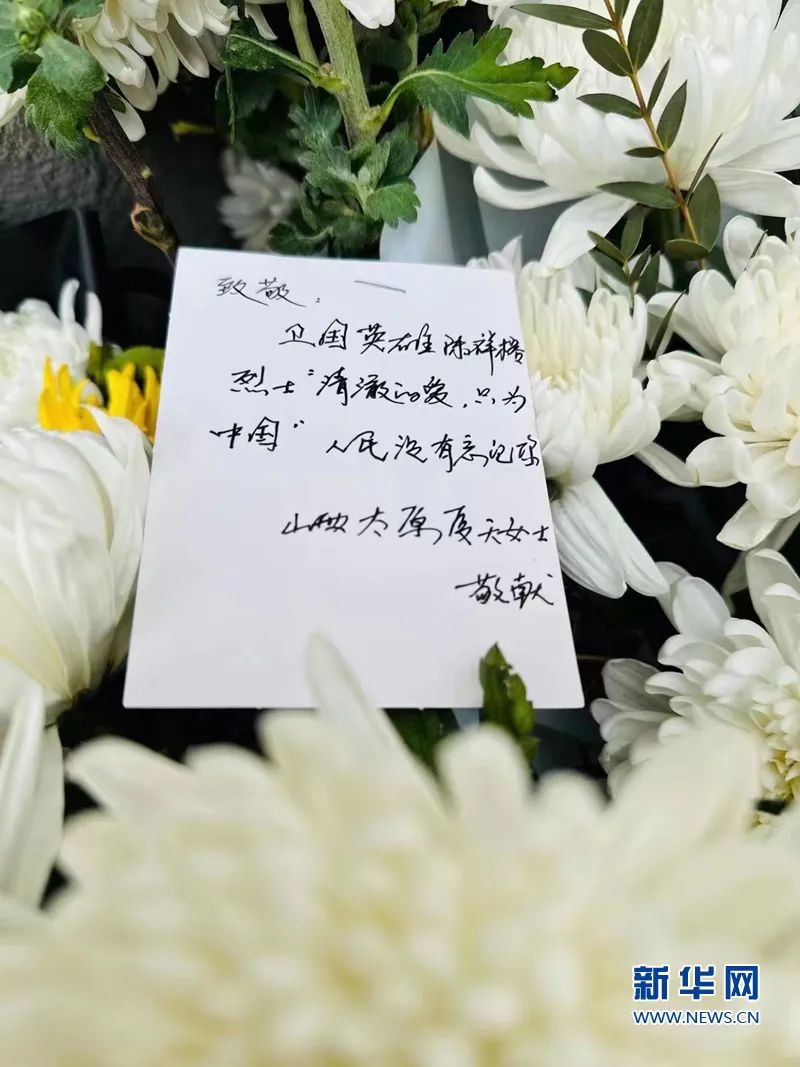 致敬：
卫国英雄陈祥榕
烈士“清澈的爱，只为
中国”人民没有忘记你
山西太原夏天女士
敬献
新华网
WWW.NEWS.CN